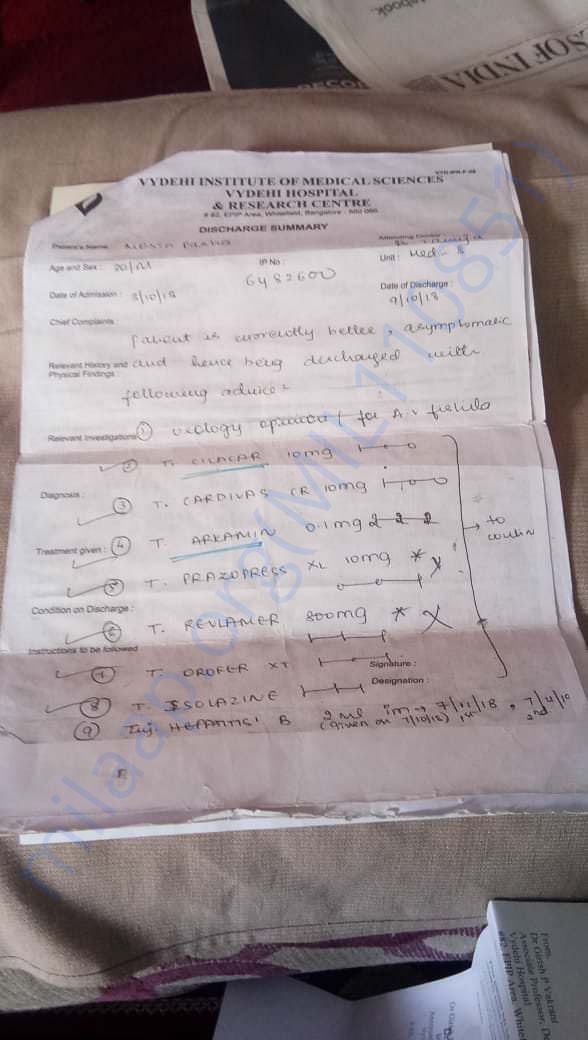 tebook.
RECOR
S OF INDIA
VYDEHI INSTITUTE OF MEDICAL SCIENCES
VYDEHI HOSPITAL
& RESEARCH CENTRE
# 82, EPIP Area, Whitefield, Bangalore - 560 066
DISCHARGE SUMMARY
Patient's Name :
Attending Doctor :
Age and Sex : 20/M
IP No :
6482600
Unit : Med - 8
Date of Admission : 3/10/18
Date of Discharge :
9/10/18
Chief Complaints :
patient is currently better, asymptomatic
Relevant History and
Physical Findings
and hence being discharged with
following advice :
Relevant Investigations
① urology for A.V fistula
② T. CILACAR 10mg
Diagnosis :
③ T. CARDIVAS CR 10mg
Treatment given :
④ T. ARKAMIN 0.1mg 2 2 2
→ to
contin
⑤ T. PRAZOPRESS XL 10mg *
Condition on Discharge :
⑥ T. REVLAMER 800mg * X
Instructions to be followed
⑦ T. OROFER XT
Signature :
Designation :
⑧ T. ISOLAZINE
⑨ Inj. HEPATITIS' B 2 ml im → 7/11/18 ,
(given on 7/10/18) 1st 2nd
milaap.org(MIL110851)
From,
Dr Girish P Vakrani
Associate Professor, De
Vydehi Hospital
#82, EPIP Area, Whitef